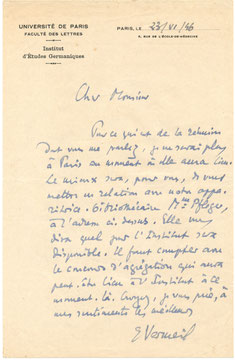 UNIVERSITÉ DE PARIS
FACULTÉ DES LETTRES
Institut
d'Études Germaniques
PARIS, LE 23/VI/46
5, RUE DE L'ÉCOLE-DE-MÉDECINE
Cher Monsieur
Pour ce qui est de la réunion
dont vous me parlez, je ne serai plus
à Paris au moment où elle aura lieu.
Le mieux sera, pour vous, de vous
mettre en relation avec notre
bibliothécaire, Mme
à l'adresse ci-dessus. Elle vous
dira quel jour l'Institut sera
disponible. Il faut compter avec
le concours d'agrégation qui aura
peut-être lieu à l'Institut à ce
moment-là. Croyez, je vous prie, à
mes sentiments les meilleurs
E Vermeil